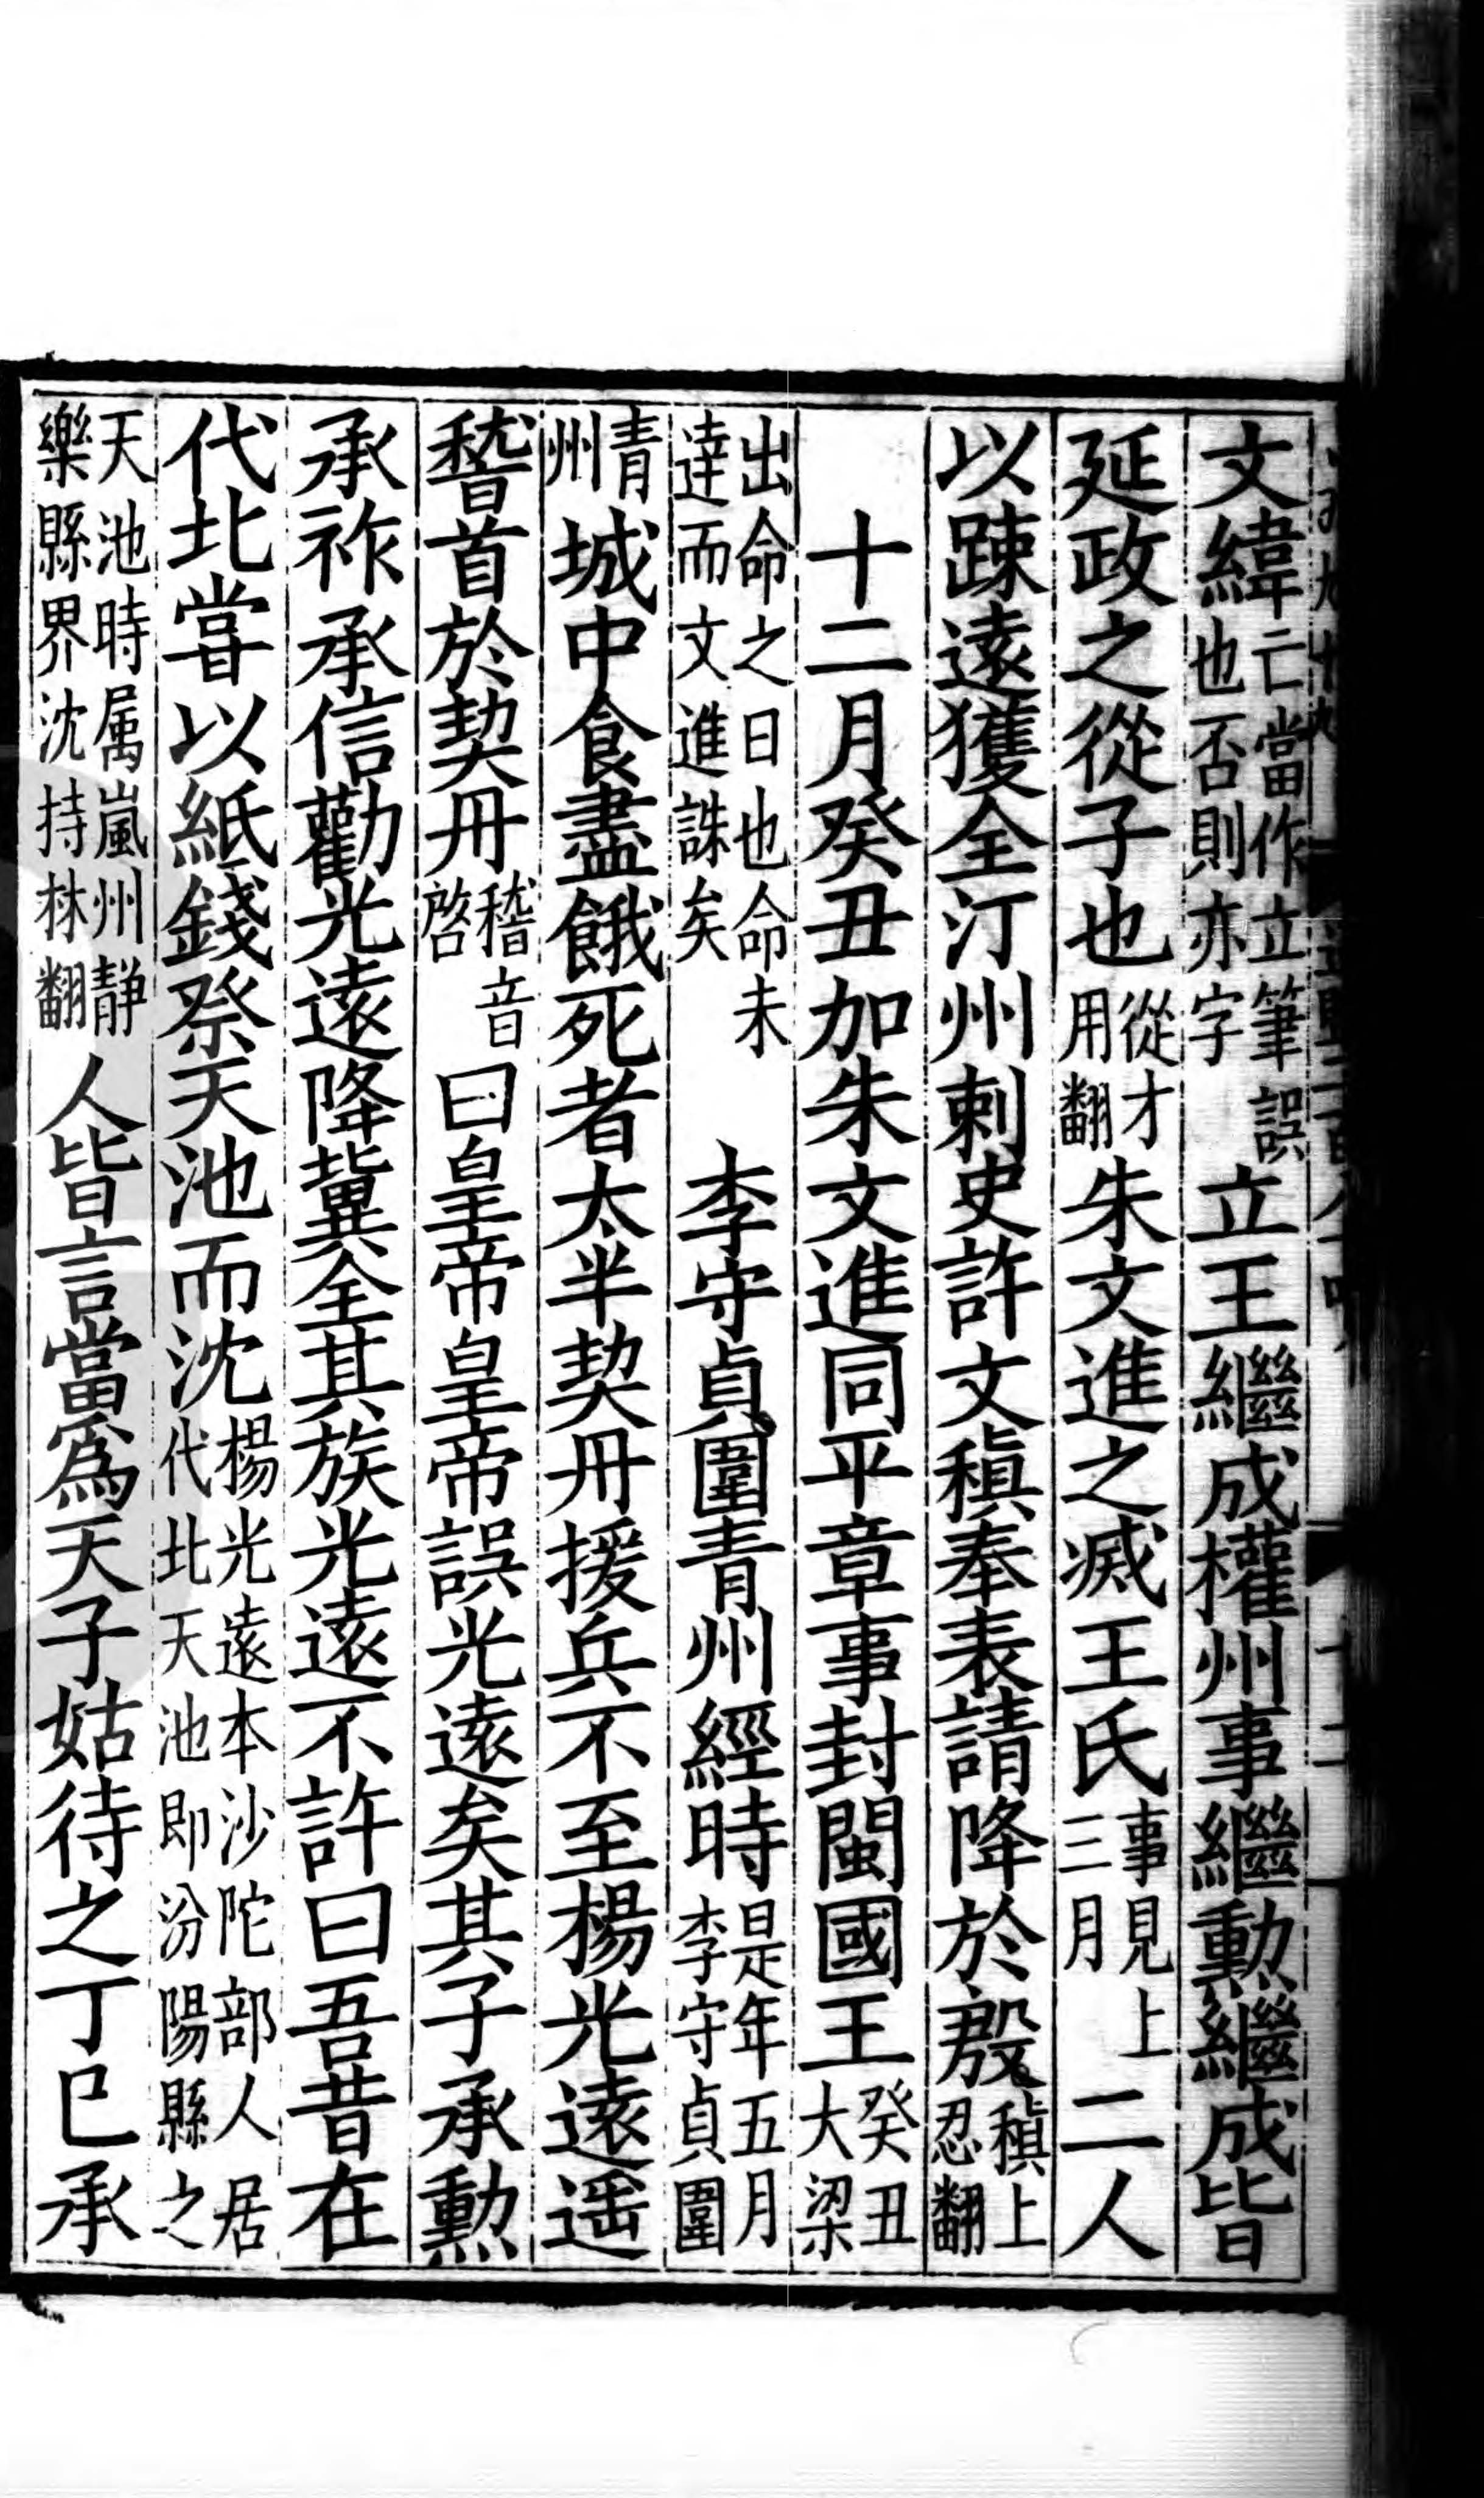 文緯亡當作立筆誤也否則亦字立王繼成權州事繼勳繼成皆
延政之從子也從才用翻朱文進之滅王氏事見上三月二人
以踈遠獲全汀州刺史許文稹奉表請降於殷稹上忍翻
十二月癸丑加朱文進同平章事封閩國王癸丑大梁
出命之日也命未達而文進誅矣李守貞圍青州經時是年五月李守貞圍
青州城中食盡餓死者太半契丹援兵不至楊光遠遥
稽首於契丹稽音啓曰皇帝皇帝誤光遠矣其子承勳
承祚承信勸光遠降冀全其族光遠不許曰吾昔在
代北嘗以紙錢祭天池而沈楊光遠本沙陀部人居代北天池即汾陽縣之
天池時属嵐州静樂縣界沈持林翻人皆言當爲天子姑待之丁巳承